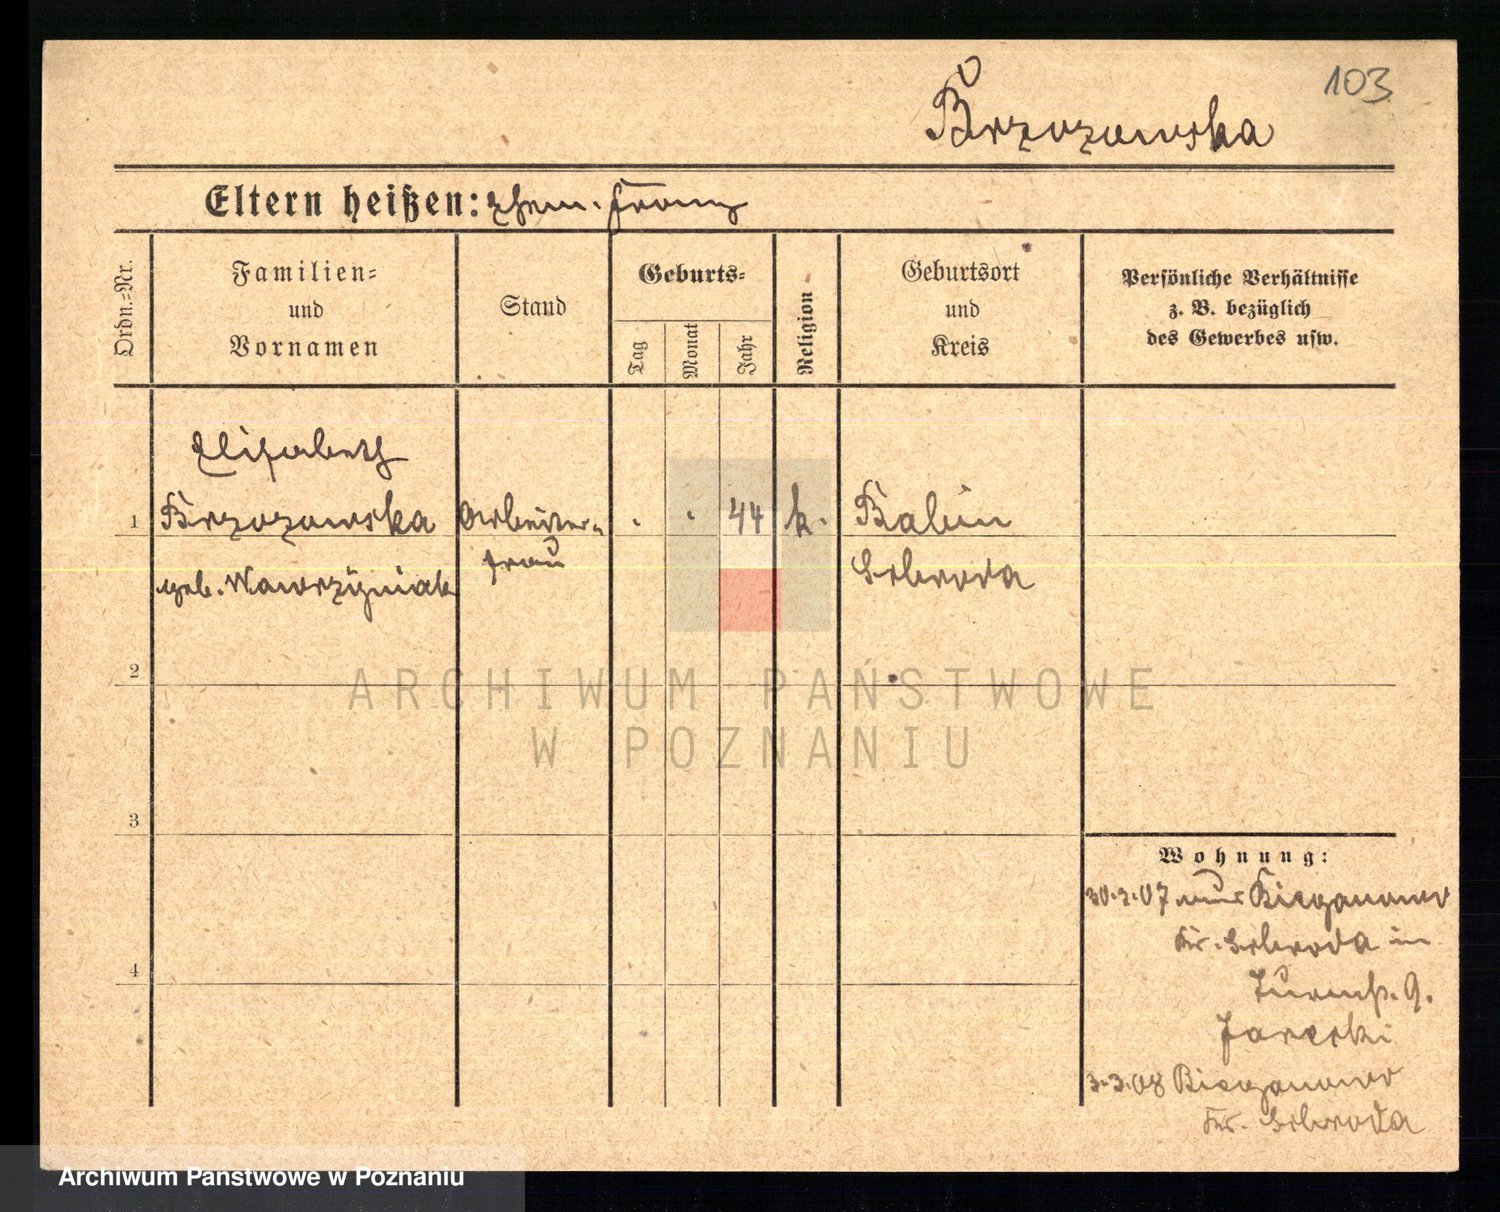 103
Brzozowska
Eltern heißen: Ehem. Franz
Ordn.=Nr.
Familien=
und
Vornamen
Stand
Geburts=
Tag
Monat
Jahr
Religion
Geburtsort
und
Kreis
Persönliche Verhältnisse
z. B. bezüglich
des Gewerbes usw.
Elisabeth
1 Brzozowska Arbeiter= . . 44 k. Babin
frau Schroda
geb. Wawrzyniak
2
ARCHIWUM PAŃSTWOWE
W POZNANIU
3
4
Wohnung:
30.3.07 aus Bieganowo
Kr. Schroda in
Turmstr. 9.
Jarecki
3.3.08 Bieganowo
Kr. Schroda
Archiwum Państwowe w Poznaniu